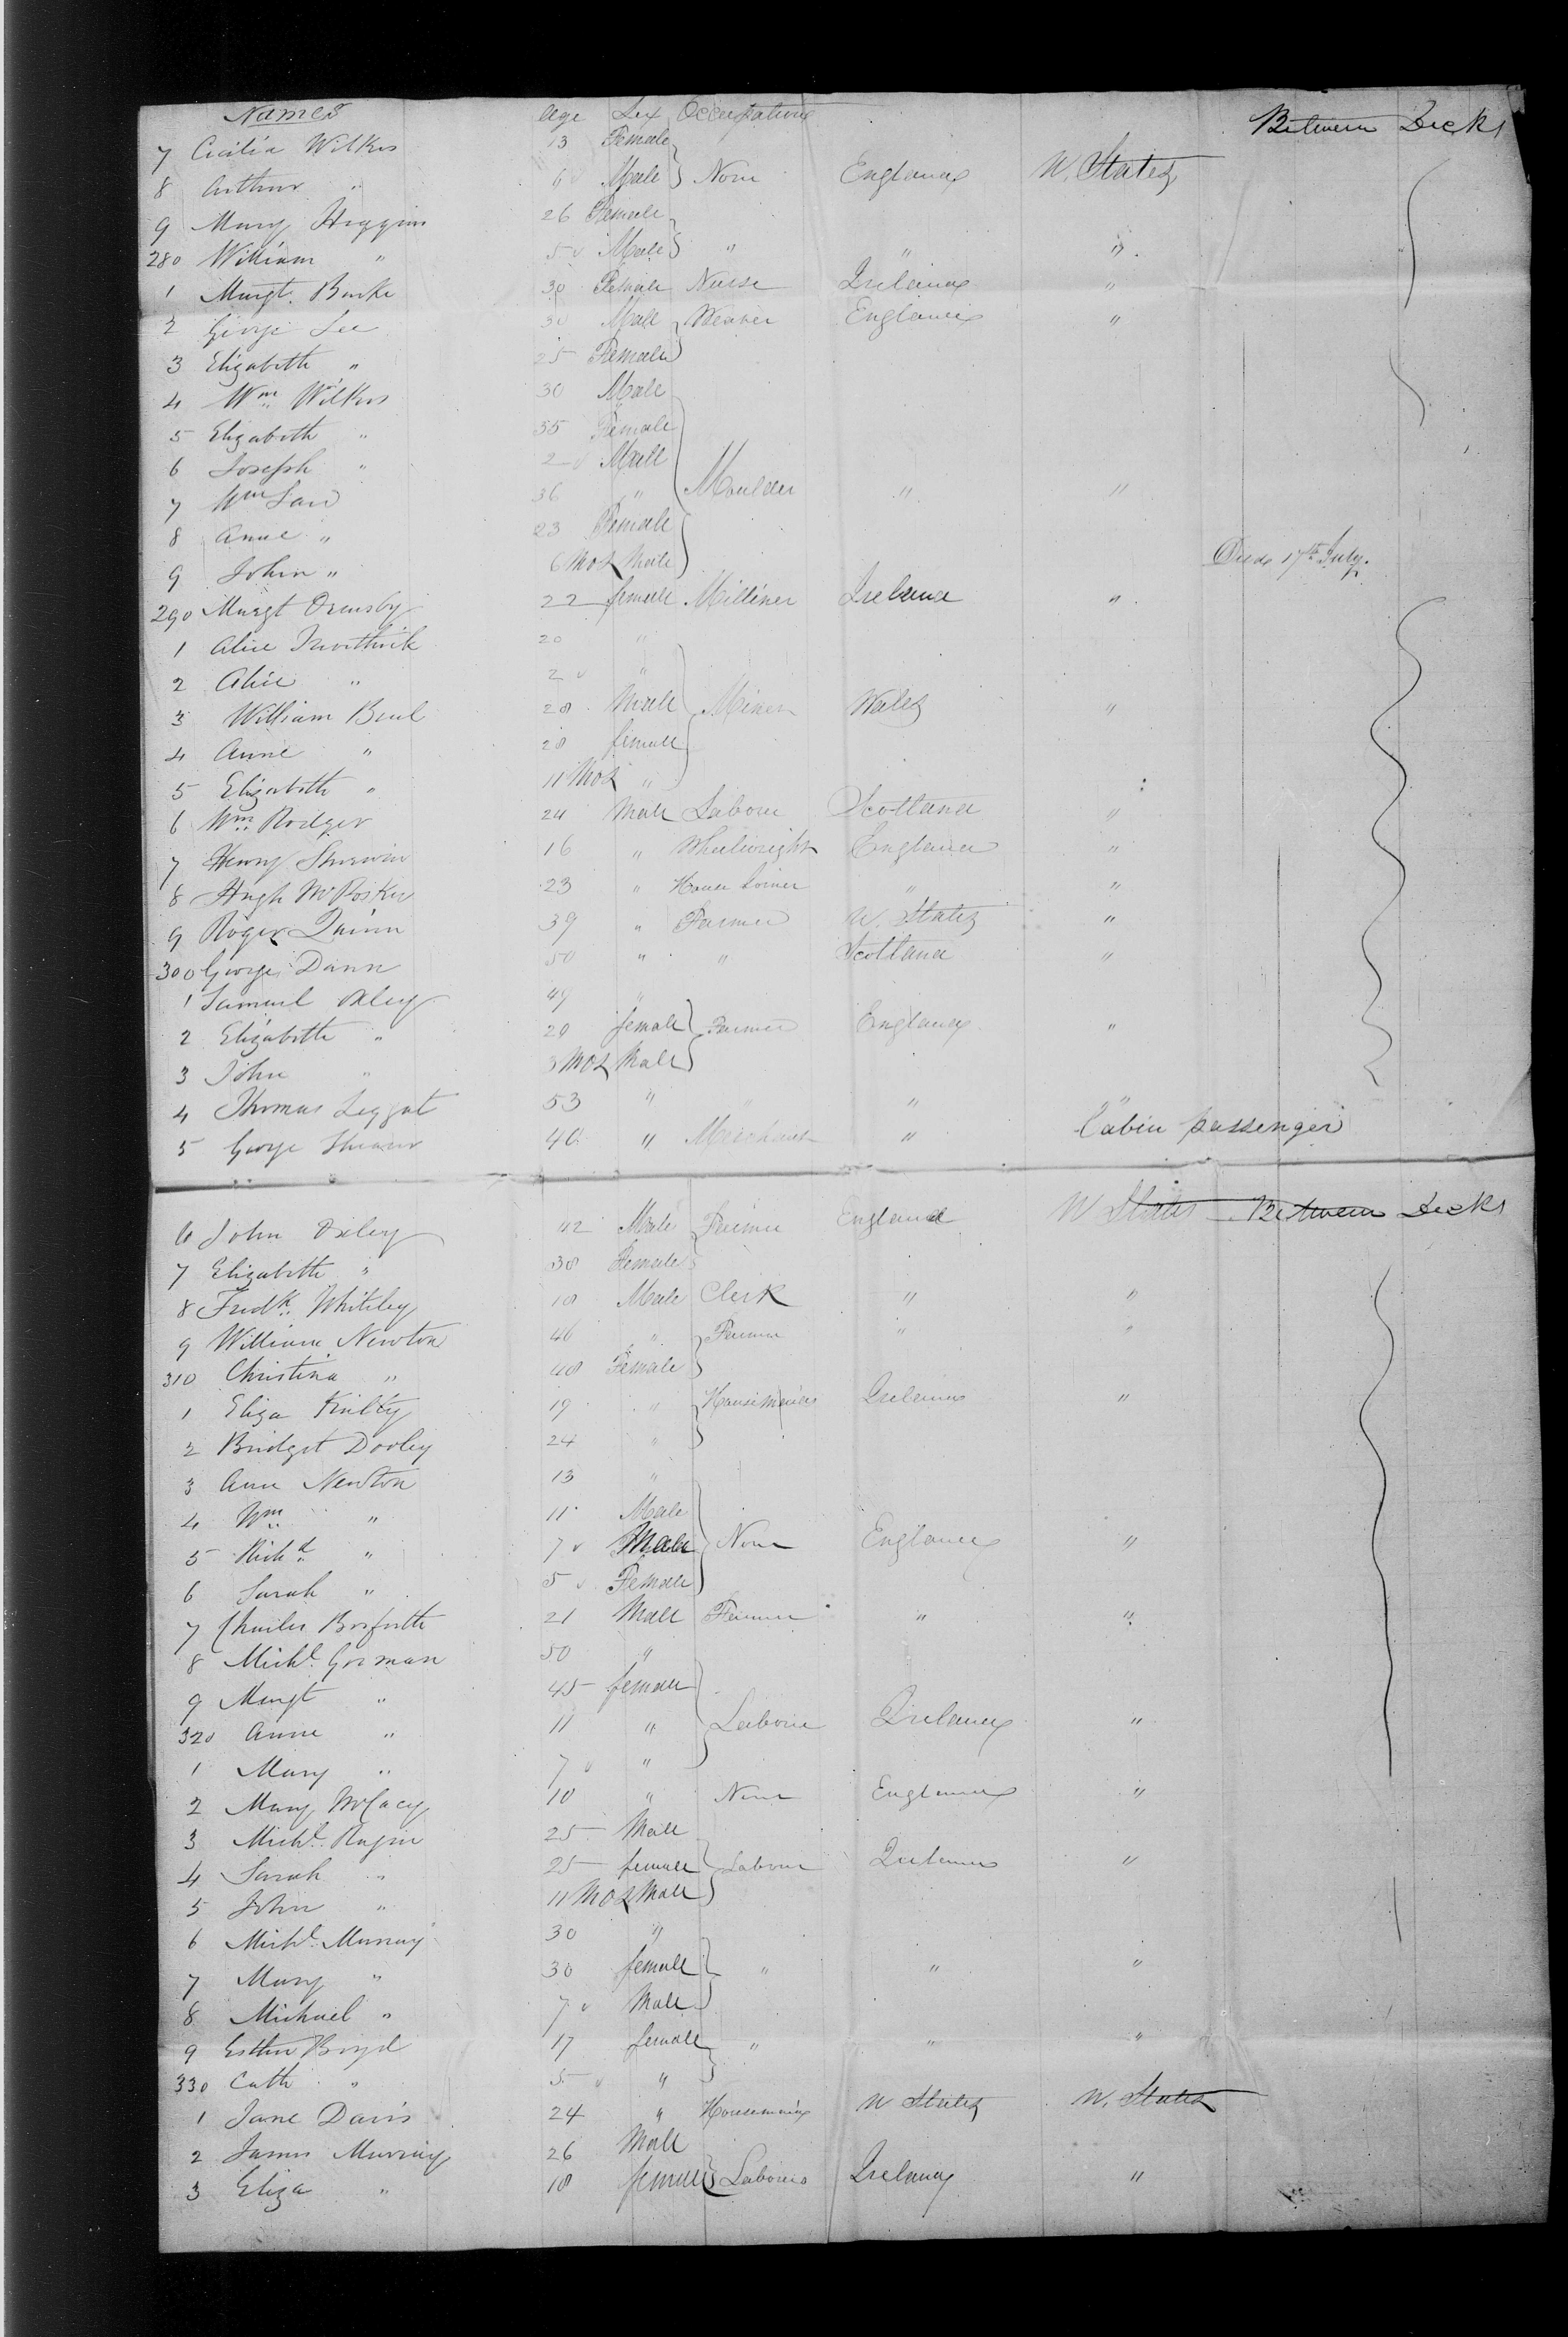 Names Age Sex Occupation Between Decks
7 Cicilia Wilkes 13 Female
8 Arthur " 6 Male None England U. States
9 Mary Higgins 26 Female
280 William " 5 Male " " "
1 Margt. Burke 30 Female Nurse Ireland "
2 George Lee 30 Male Weaver England "
3 Elizabeth " 25 Female
4 Wm Wilkes 30 Male
5 Elizabeth " 35 Female
6 Joseph " 2 Male
7 Wm Law 36 " Moulder " "
8 Anne " 23 Female
9 John " 6 Mos Male Died 17th July.
290 Margt Ormsby 22 female Milliner Ireland "
1 Alice 20 "
2 Alice " 2 "
3 William Beul 28 Male Miner Wales "
4 Anne " 28 female
5 Elizabeth " 11 Mos "
6 Wm Rodger 24 Male Labour Scotland "
7 Henry Sherwin 16 " Wheelwright England "
8 Hugh McRosker 23 " House Joiner " "
9 Roger Quinn 39 " Farmer U. States "
300 George Dann 50 " " Scotland "
1 Samuel Oxley 49 "
2 Elizabeth " 20 female Farmer England "
3 John " 3 Mos Male
4 Thomas Leggat 53 " " " "
5 George Shearer 40 " Merchant " Cabin passenger
6 John Oxley 42 Male Farmer England U States Between Decks
7 Elizabeth " 38 Female
8 Fredk. Whiteley 18 Male Clerk " "
9 William Newton 46 " Farmer " "
310 Christina " 48 Female
1 Eliza Kielty 19 " Housemaids Ireland "
2 Bridget Dooley 24 "
3 Ann Newton 13 "
4 Wm " 11 Male
5 Richd " 7 Male None England "
6 Sarah " 5 Female
7 Charles Bosforth 21 Male Farmer " "
8 Michl. Gorman 50 "
9 Margt " 45 female
320 Anne " 11 " Labour Ireland "
1 Mary " 7 "
2 Mary McCacy 10 " None England "
3 Michl. Ragin 25 Male
4 Sarah " 25 female Labour Ireland "
5 John " 11 Mos Male
6 Michl. Murray 30 "
7 Mary " 30 female " " "
8 Michael " 7 Male
9 Esther Boyd 17 female " " "
330 Cath " 5 "
1 Jane Davis 24 " Housemaid U States U. States
2 James Murray 26 Male
3 Eliza " 18 female Labours Ireland "